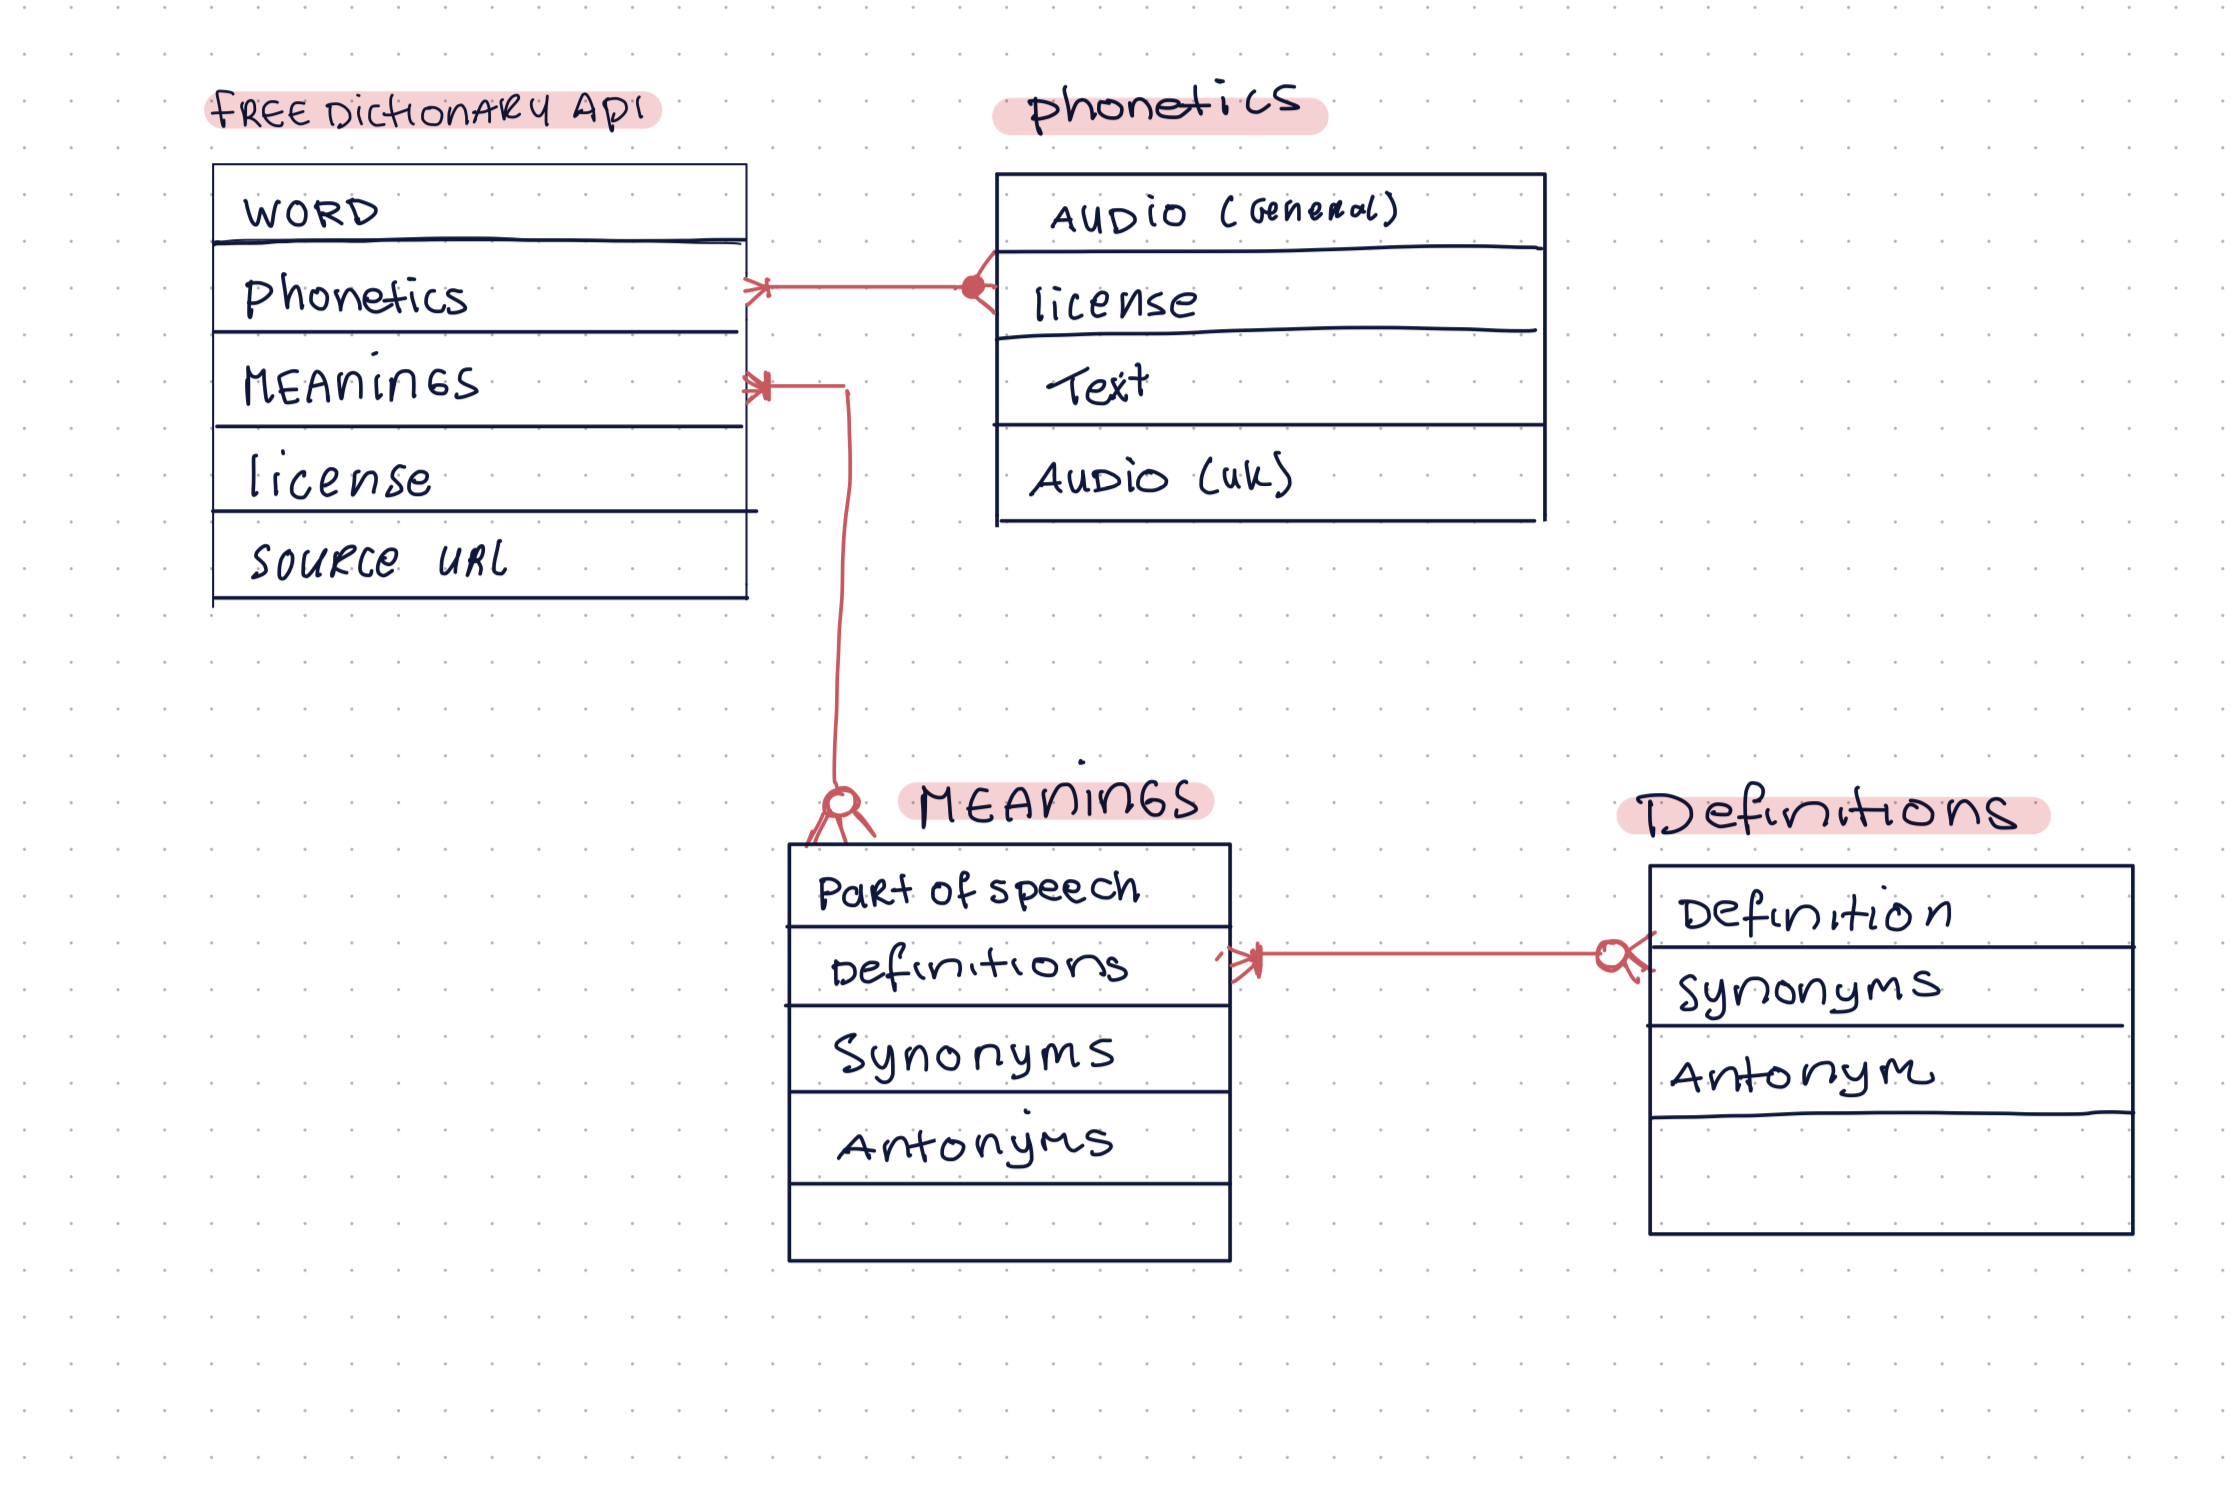 FREE DictionARy Api
WORD
phonetics
MEAninGS
license
source URL
phonetics
AUDiO (General)
license
Text
AuDiO (UK)
MEAninGS
Part of speech
Definitions
Synonyms
Antonyms
Definitions
Definition
synonyms
Antonym